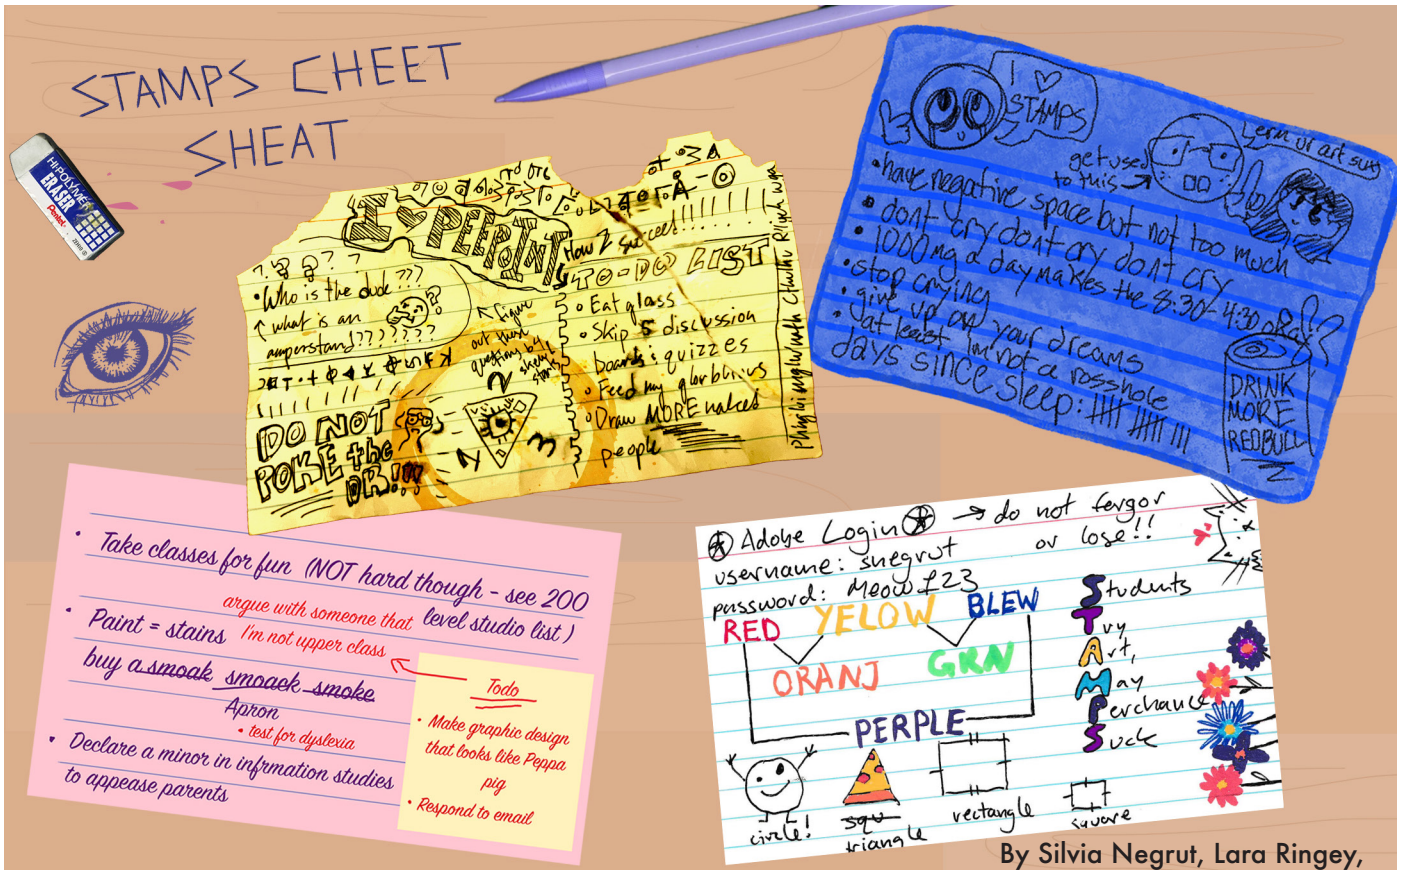 STAMPS CHEET
SHEAT
HI-POLYMER
ERASER
Pentel
I ♥ PEEPIN'!
How 2 succeed!!!!!
? ? ? ? ?
• Who is the dude???
what is an
amperstand???????
figure
out these
questions by
DO NOT
POKE the
DR!!!
2
3
TO-DO LIST
• Eat glass
• Skip 5 discussion
boards: quizzes
• Feed my
• Draw MORE naked
people
I ♥
STAMPS
get used
to this →
erm ur art sux
• have negative space but not too much
• dont cry dont cry dont cry
• 1000mg a day makes the 8:30-4:30 okay
• stop crying
• give up on your dreams
• at least im not a rosshole
days since sleep: |||| |||| |||
DRINK
MORE
REDBULL
• Take classes for fun (NOT hard though - see 200
level studio list)
argue with someone that
I'm not upper class
• Paint = stains
buy a smoak smoack smoke
Apron
• test for dyslexia
• Declare a minor in infrmation studies
to appease parents
Todo
• Make graphic design
that looks like Peppa
pig
• Respond to email
Adobe Login → do not fergor
or lose!!
username: snegrut
password: Meow123
RED YELOW BLEW
ORANJ GRN
PERPLE
Students
Try
Art,
May
Perchance
Suck
circle!
squ
triangle
rectangle
square
By Silvia Negrut, Lara Ringey,